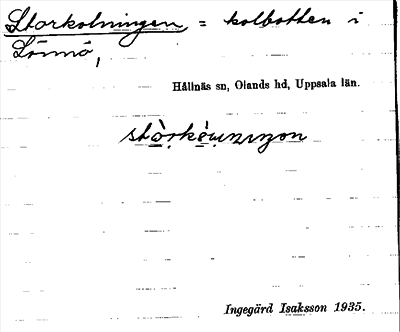 Storkolningen = kolbotten i
Lönnö,
Hållnäs sn, Olands hd, Uppsala län.
Ingegärd Isaksson 1935.